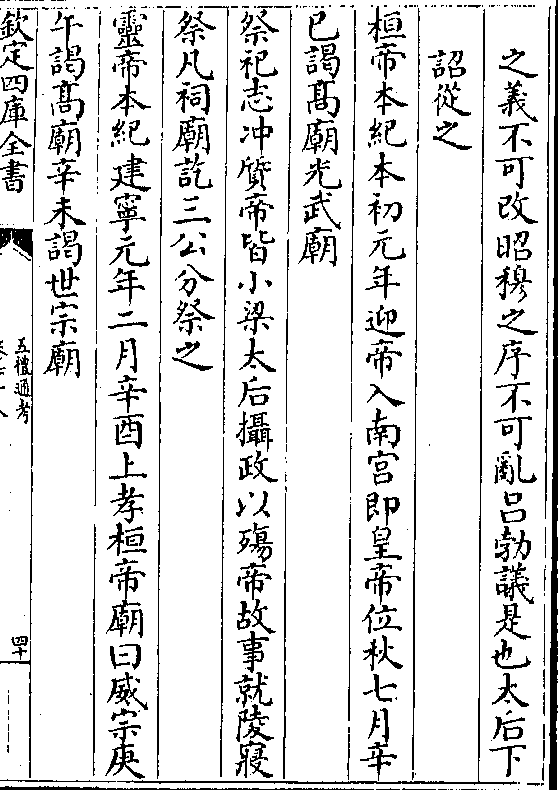 之義不可改昭穆之序不可亂吕勃議是也太后下
詔從之
桓帝本紀本初元年迎帝入南宫即皇帝位秋七月辛
已謁髙廟光武廟
祭祀志冲質帝皆小梁太后攝政以殤帝故事就陵寢
祭凡祠廟訖三公分祭之
靈帝本紀建寧元年二月辛酉上孝桓帝廟曰威宗庚
午謁髙廟辛未謁世宗廟
欽定四庫全書
五禮通考
四十